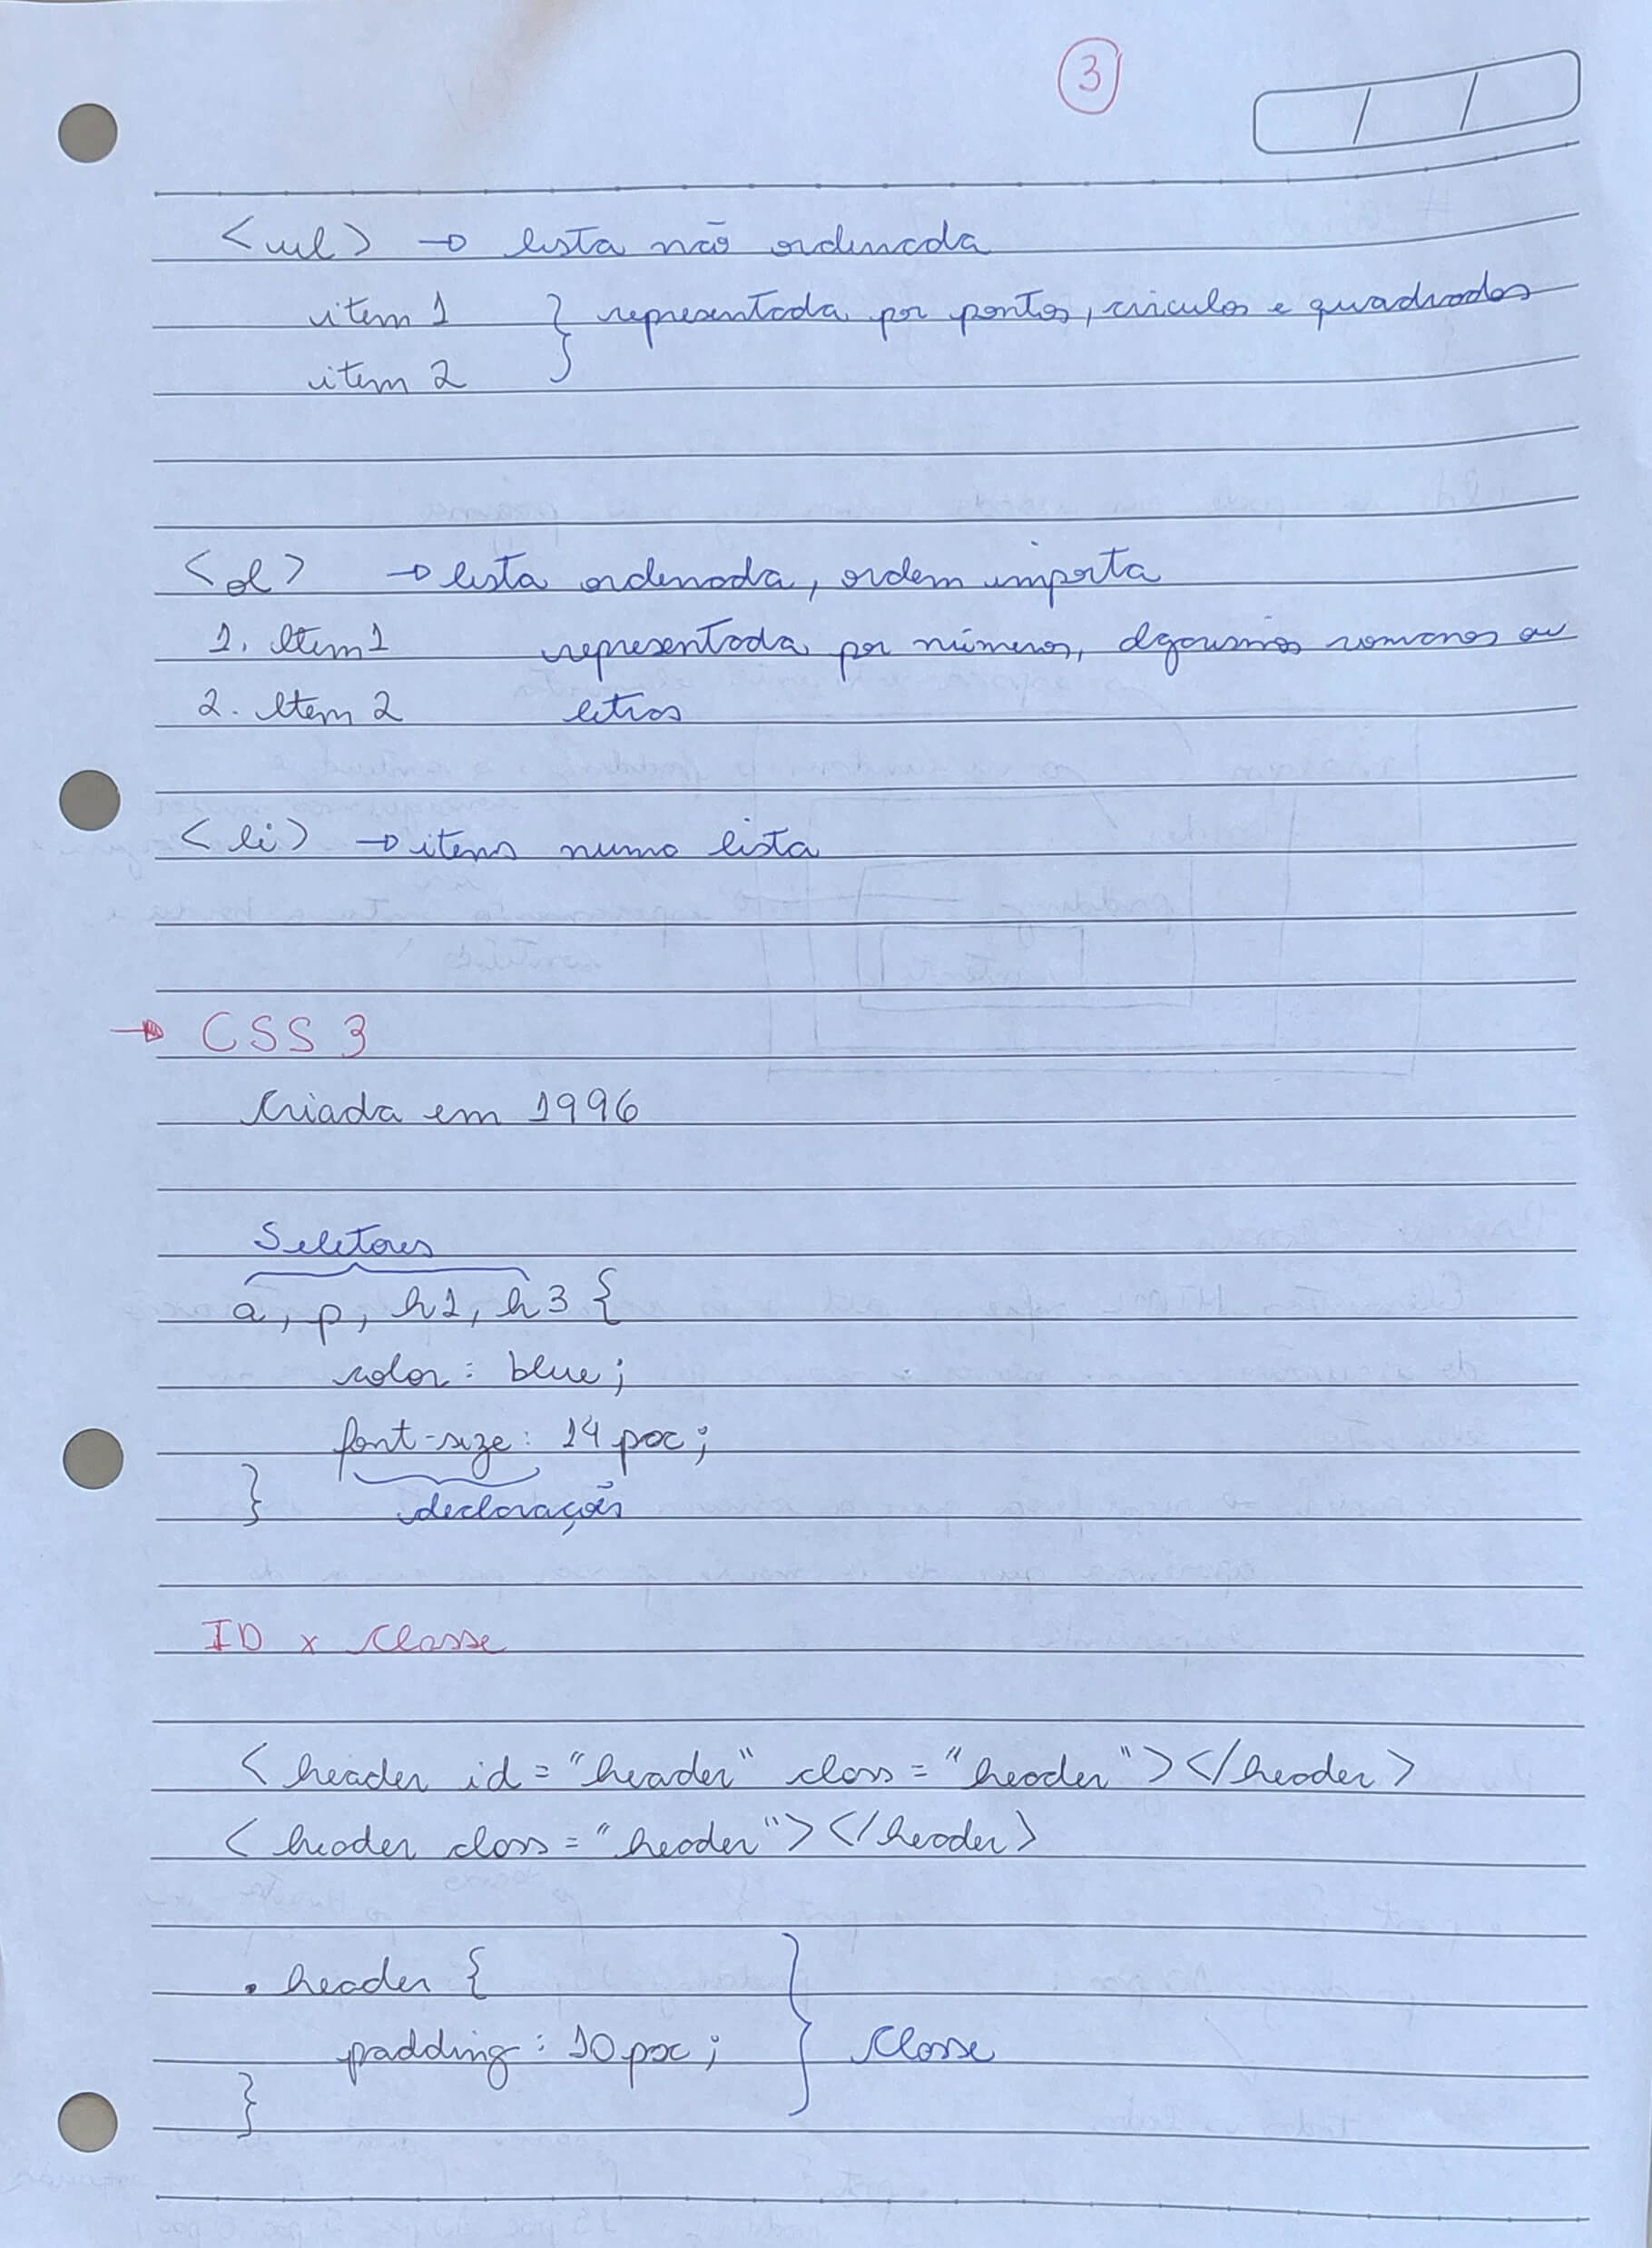 3
<ul> → lista não ordenada
item 1 } representada por pontos, circulos e quadrados
item 2
<ol> → lista ordenada, ordem importa
1. Item 1 representada por números, algarismos romanos ou
2. Item 2 letras
<li> → itens numa lista
→ CSS 3
Criada em 1996
Seletores
a, p, h1, h3 {
color: blue;
font-size: 14px;
} declarações
ID x Classe
<header id="header" class="header"></header>
<header class="header"></header>
.header {
padding: 10px; } Classe
}